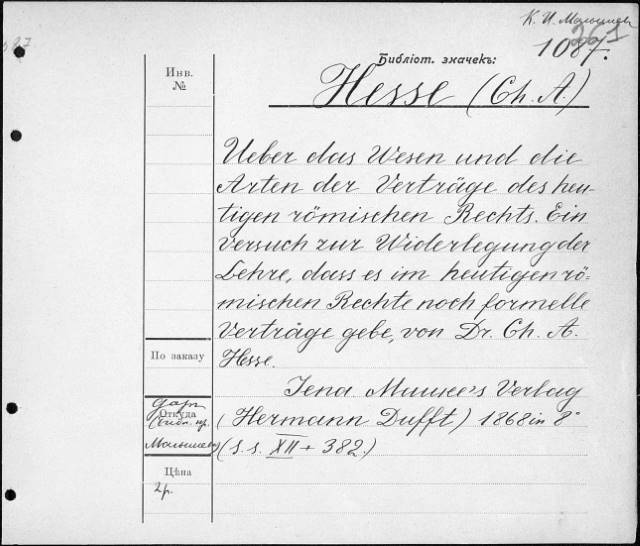 К. И. Малышев
1087.
261
Библіот. значекъ:
Инв.
№
Hesse (Ch. A.)
Ueber das Wesen und die
Arten der Verträge des heu-
tigen römischen Rechts. Ein
Versuch zur Widerlegung der
Lehre, dass es im heutigen rö-
mischen Rechte noch formelle
Verträge gebe, von Dr. Ch. A.
Hesse.
По заказу
Jena Mauke's Verlag
даръ
Откуда
(Hermann Dufft) 1868 in 8°
Малышева
(S. s. XII + 382.)
Цѣна
2р.